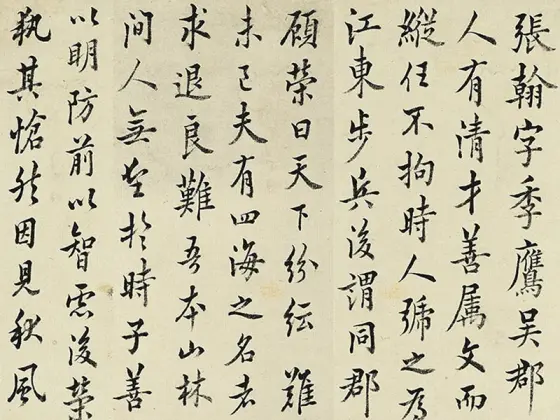 張翰字季鷹吳郡
人有清才善属文而
縱任不拘時人號之為
江東步兵後謂同郡
顧榮曰天下紛紜難
未已夫有四海之名者
求退良難吾本山林
間人無望於時子善
以明防前以智慮後榮
執其愴然因見秋風